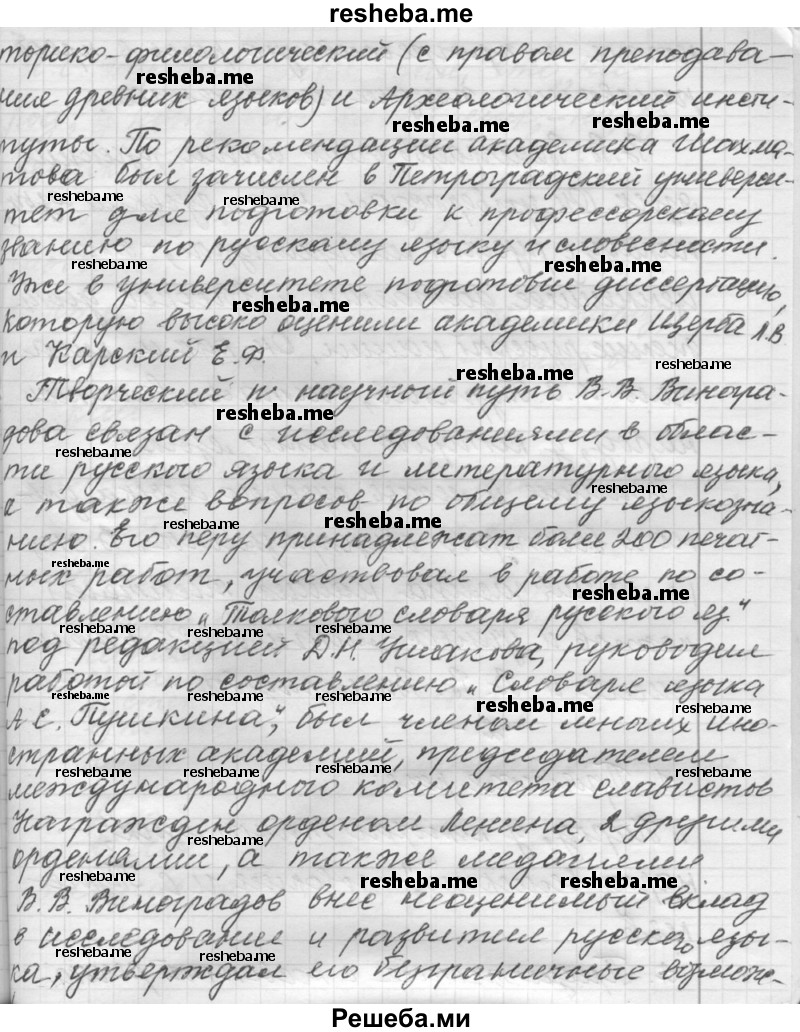 resheba.me
торико-филологический (с правом преподава-
ния древних языков) и Археологический инсти-
туты. По рекомендации академика Шахма-
това был зачислен в Петроградский универси-
тет для подготовки к профессорскому
званию по русскому языку и словесности.
Уже в университете подготовил диссертацию,
которую высоко оценили академики Щерба Л.В.
и Карский Е.Ф.
Творческий и научный путь В.В. Виногра-
дова связан с исследованиями в облас-
ти русского языка и литературного языка,
а также вопросов по общему языкозна-
нию. Его перу принадлежат более 200 печат-
ных работ, участвовал в работе по со-
ставлению „Толкового словаря русского яз."
под редакцией Д.Н. Ушакова, руководил
работой по составлению „Словаря языка
А.С. Пушкина", был членом многих ино-
странных академий, председателем
международного комитета славистов
Награжден орденом Ленина, 2 другими
орденами, а также медалями
В.В. Виноградов внес неоценимый вклад
в исследование и развитие русского язы-
ка, утверждал его безграничные возмож-
Решеба.ми